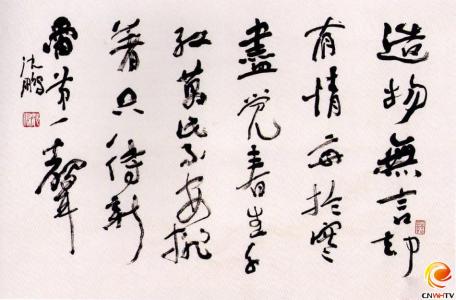 造物無言却
有情每於寒
盡覺春生千
紅萬紫安排
著只待新
雷第一聲
沈鹏
CNWHTV